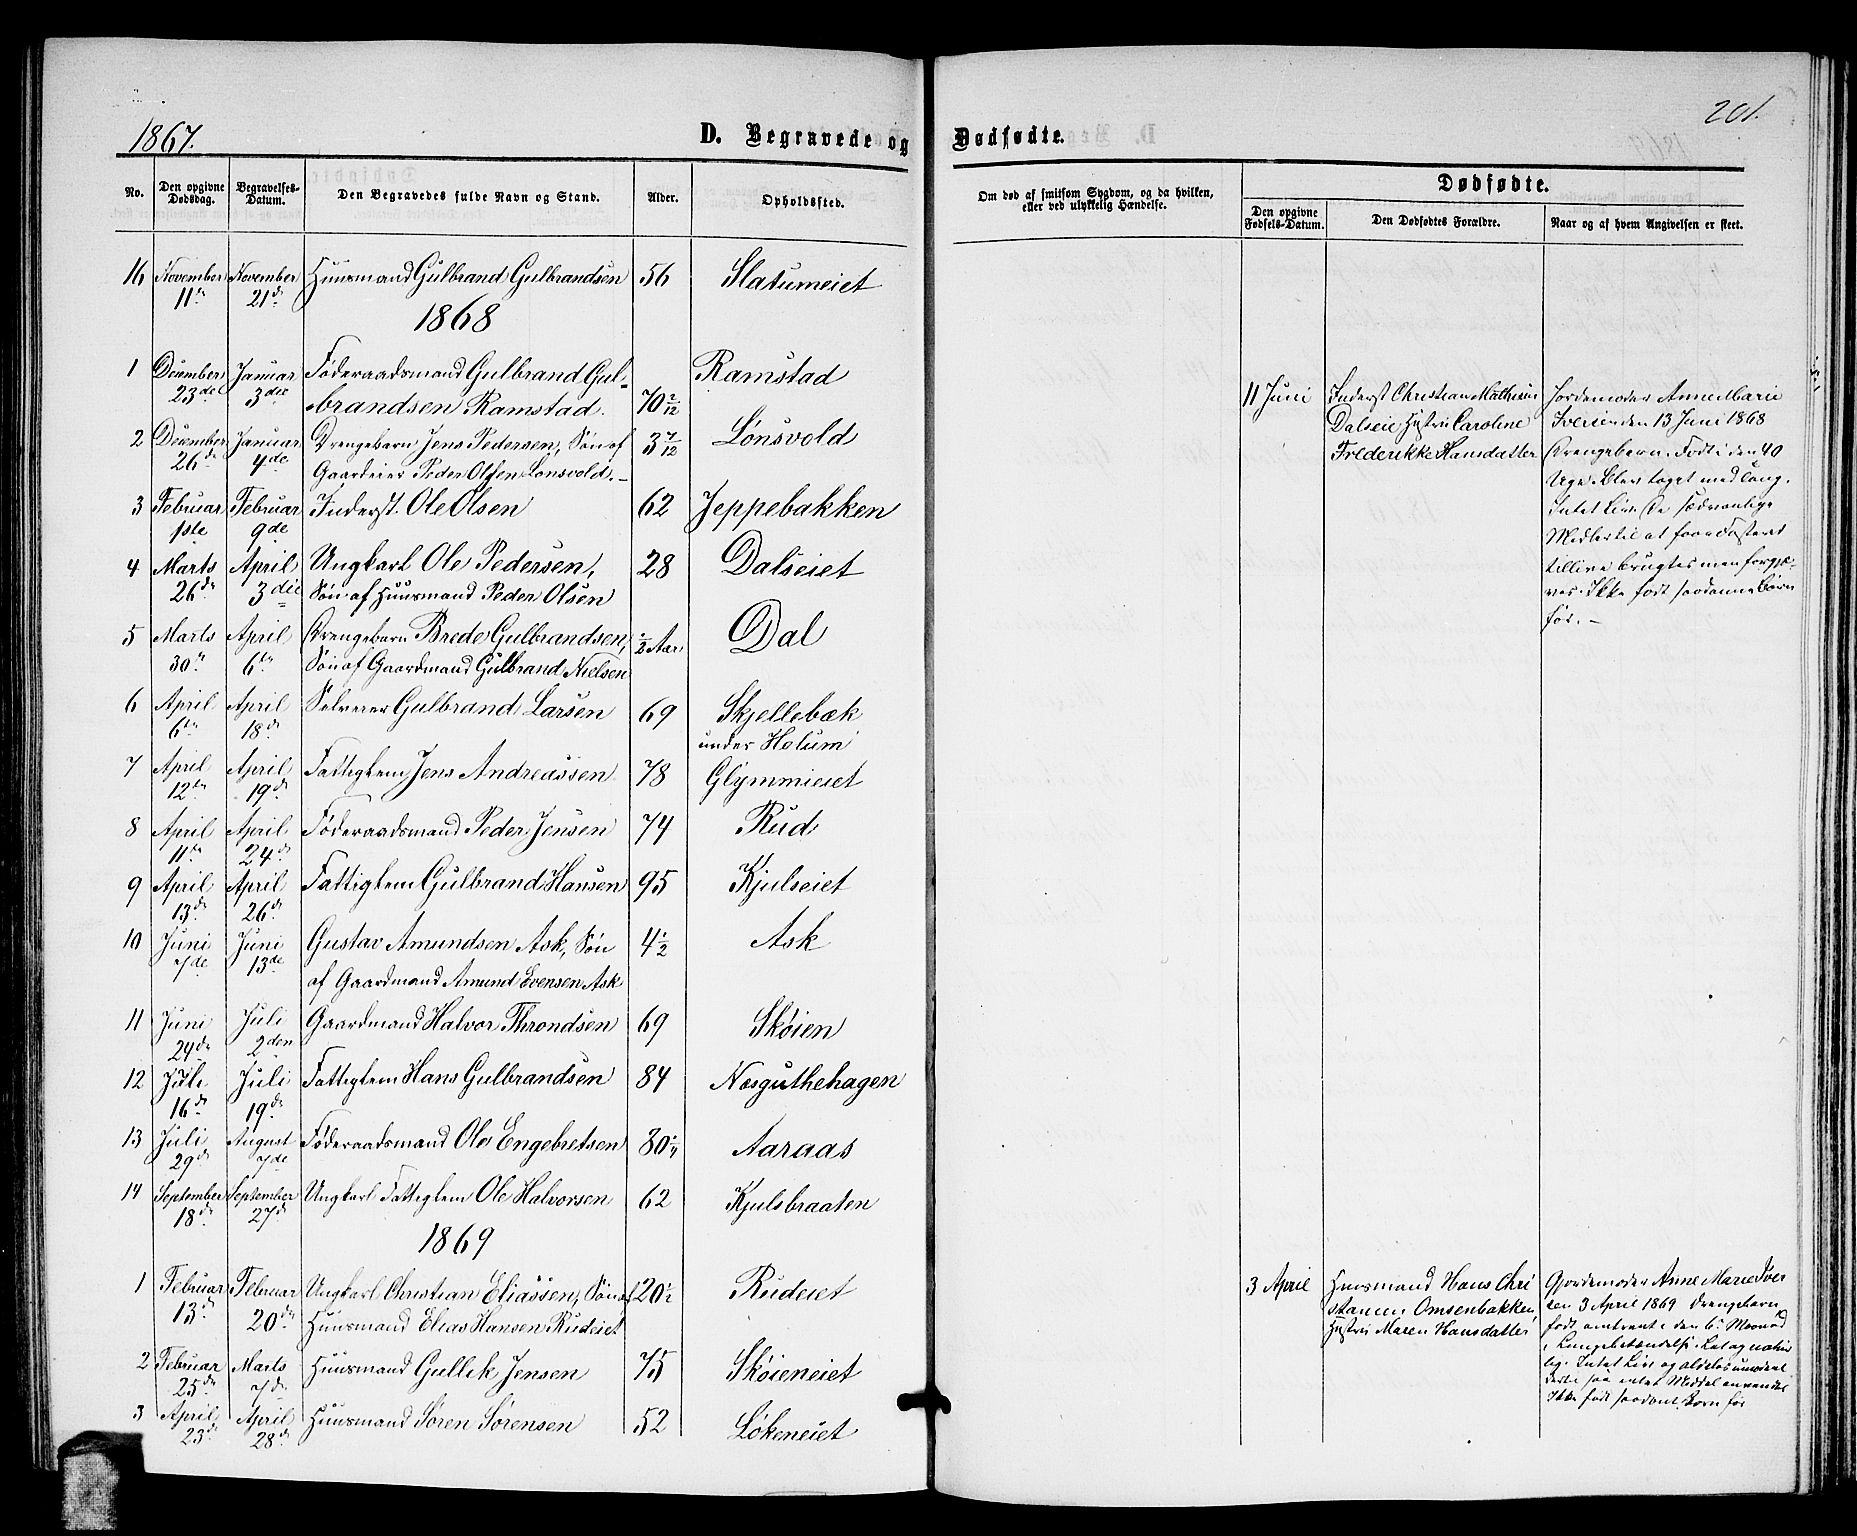 1867.
D. Begravede og Dødfødte.
201.
No. Den opgivne Dødsdag. Begravelses-Datum. Den Begravedes fulde Navn og Stand. Alder. Opholdssted.
Om død af smitsom Sygdom, og da hvilken, eller ved ulykkelig Hændelse.
Dødfødte.
Den opgivne Fødsels-Datum. Den Dødfødtes Forældre. Naar og af hvem Angivelsen er skeet.
16 November November Huusmand Gulbrand Gulbrandsen 56 Slatumeiet
11te 21de
1868
1 December Januar Føderaadsmand Gulbrand Gul- Ramstad
23de 3die brandsen Ramstad. 70 2/12
2 December Januar Drengebarn Jens Pedersen, Søn af 3 7/12 Lønsvold
26de 4de Gaardeier Peder Olsen Lønsvold.-
3 Februar Februar Inderst. Ole Olsen 62 Jeppebakken
1ste 9de
4 Marts April Ungkarl Ole Pedersen, 28 Dalseiet
26de 3die Søn af Huusmand Peder Olsen
5 Marts April Drengebarn Brede Gulbrandsen, 1/2 Aar Dal
30te 6te Søn af Gaardmand Gulbrand Nielsen
6 April April Selveier Gulbrand Larsen 69 Skjellebæk
6te 18de under Holum
7 April April Fattiglem Jens Andreassen 78 Glymmieiet
12te 19de
8 April April Føderaadsmand Peder Jensen 74 Rud
11te 24de
9 April April Fattiglem Gulbrand Hansen 95 Kjulseiet
13de 26de
10 Juni Juni Gustav Amundsen Ask, Søn 4 1/2 Ask
7de 13de af Gaardmand Amund Evensen Ask
11 Juni Juli Gaardmand Halvor Throndsen 69 Skøien
24de 2den
12 Juli Juli Fattiglem Hans Gulbrandsen 84 Næsguthehagen
16de 19de
13 Juli August Føderaadsmand Ole Engebretsen 80 1/4 Aaraas
29de 7de
14 September September Ungkarl Fattiglem Ole Halvorsen 62 Kjulsbraaten
18de 27de
1869
1 Februar Februar Ungkarl Christian Eliassen, Søn af 20 1/2 Rudeiet
13de 20de Huusmand Elias Hansen Rudeiet
2 Februar Marts Huusmand Gullik Jensen 75 Skøieneiet
25de 7de
3 April April Huusmand Søren Sørensen 52 Løkeneiet
23de 28de
11 Juni Inderst Christian Mathisen
Dalseie Hustru Caroline
Frederikke Hansdatter
Jordemoder Anne Marie
Iversen den 13 Juni 1868
Drengebarn. Født i den 40
Uge. Blev taget med Tang.
Intet Liv. De sædvanlige
Midler til at faae Fosteret
tillive brugtes men forgjæ-
ves. Ikke født saadanne Børn
før. -
3 April Huusmand Hans Chri
stansen Omsenbakken
Hustru Maren Hansdatter
Gjordemoder Anne Marie Iver
sen 3 April 1869 Drengebarn
født omtrent i den 6te Maaned
Intet Liv og aldeles
saa intet Middel anvendt
Ikke født saadant Barn før